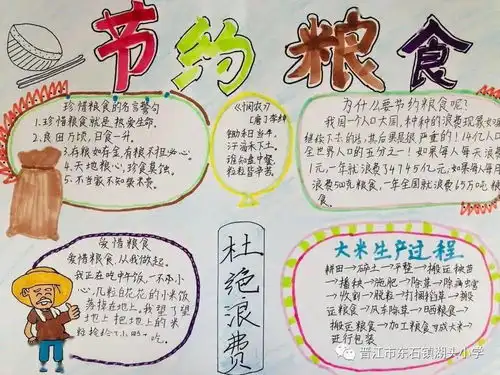 节约粮食
珍惜粮食的名言警句
1.珍惜粮食就是热爱生命.
2.良田万顷,日食一升。
3.存粮如存金,有粮不担心.
4.天地粮心,珍食莫蚀。
5.不当家不知柴米贵。
《悯农》
[唐]李绅
锄禾日当午,
汗滴禾下土。
谁知盘中餐,
粒粒皆辛苦
为什么要节约粮食呢?
我国一个人口大国,种种的浪费现象如
继续下去的话,其后果是很严重的!14亿人
全世界人口的五分之一!如果每人每天浪费
1元,一年就浪费了4745亿元,如果每人每月
浪费500克粮食,一年全国就浪费
食。
爱惜粮食
爱惜粮食,从我做起。
我正在吃中午饭,一不小
心,几粒白花花的小米饭
荡掉在地上,我望了望
地上把地上的米
吃。
杜绝浪费
大米生产过程
耕田→碎土→平整→搬运秧苗
→播秧→施肥→除草→除病虫害
→收割→脱粒→打捆稻草→搬
运粮食→风车除草→晒粮食→
搬运粮食→加工粮食成大米→
进行包装
晋江市东石镇湖头小学